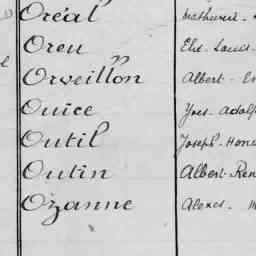 Oréal Mathurin
Oreu Elie-Louis
Orveillon Albert
Ouice Yves-Adolp
Outil Joseph-Hono
Outin Albert-Ren
Ozanne Alexis